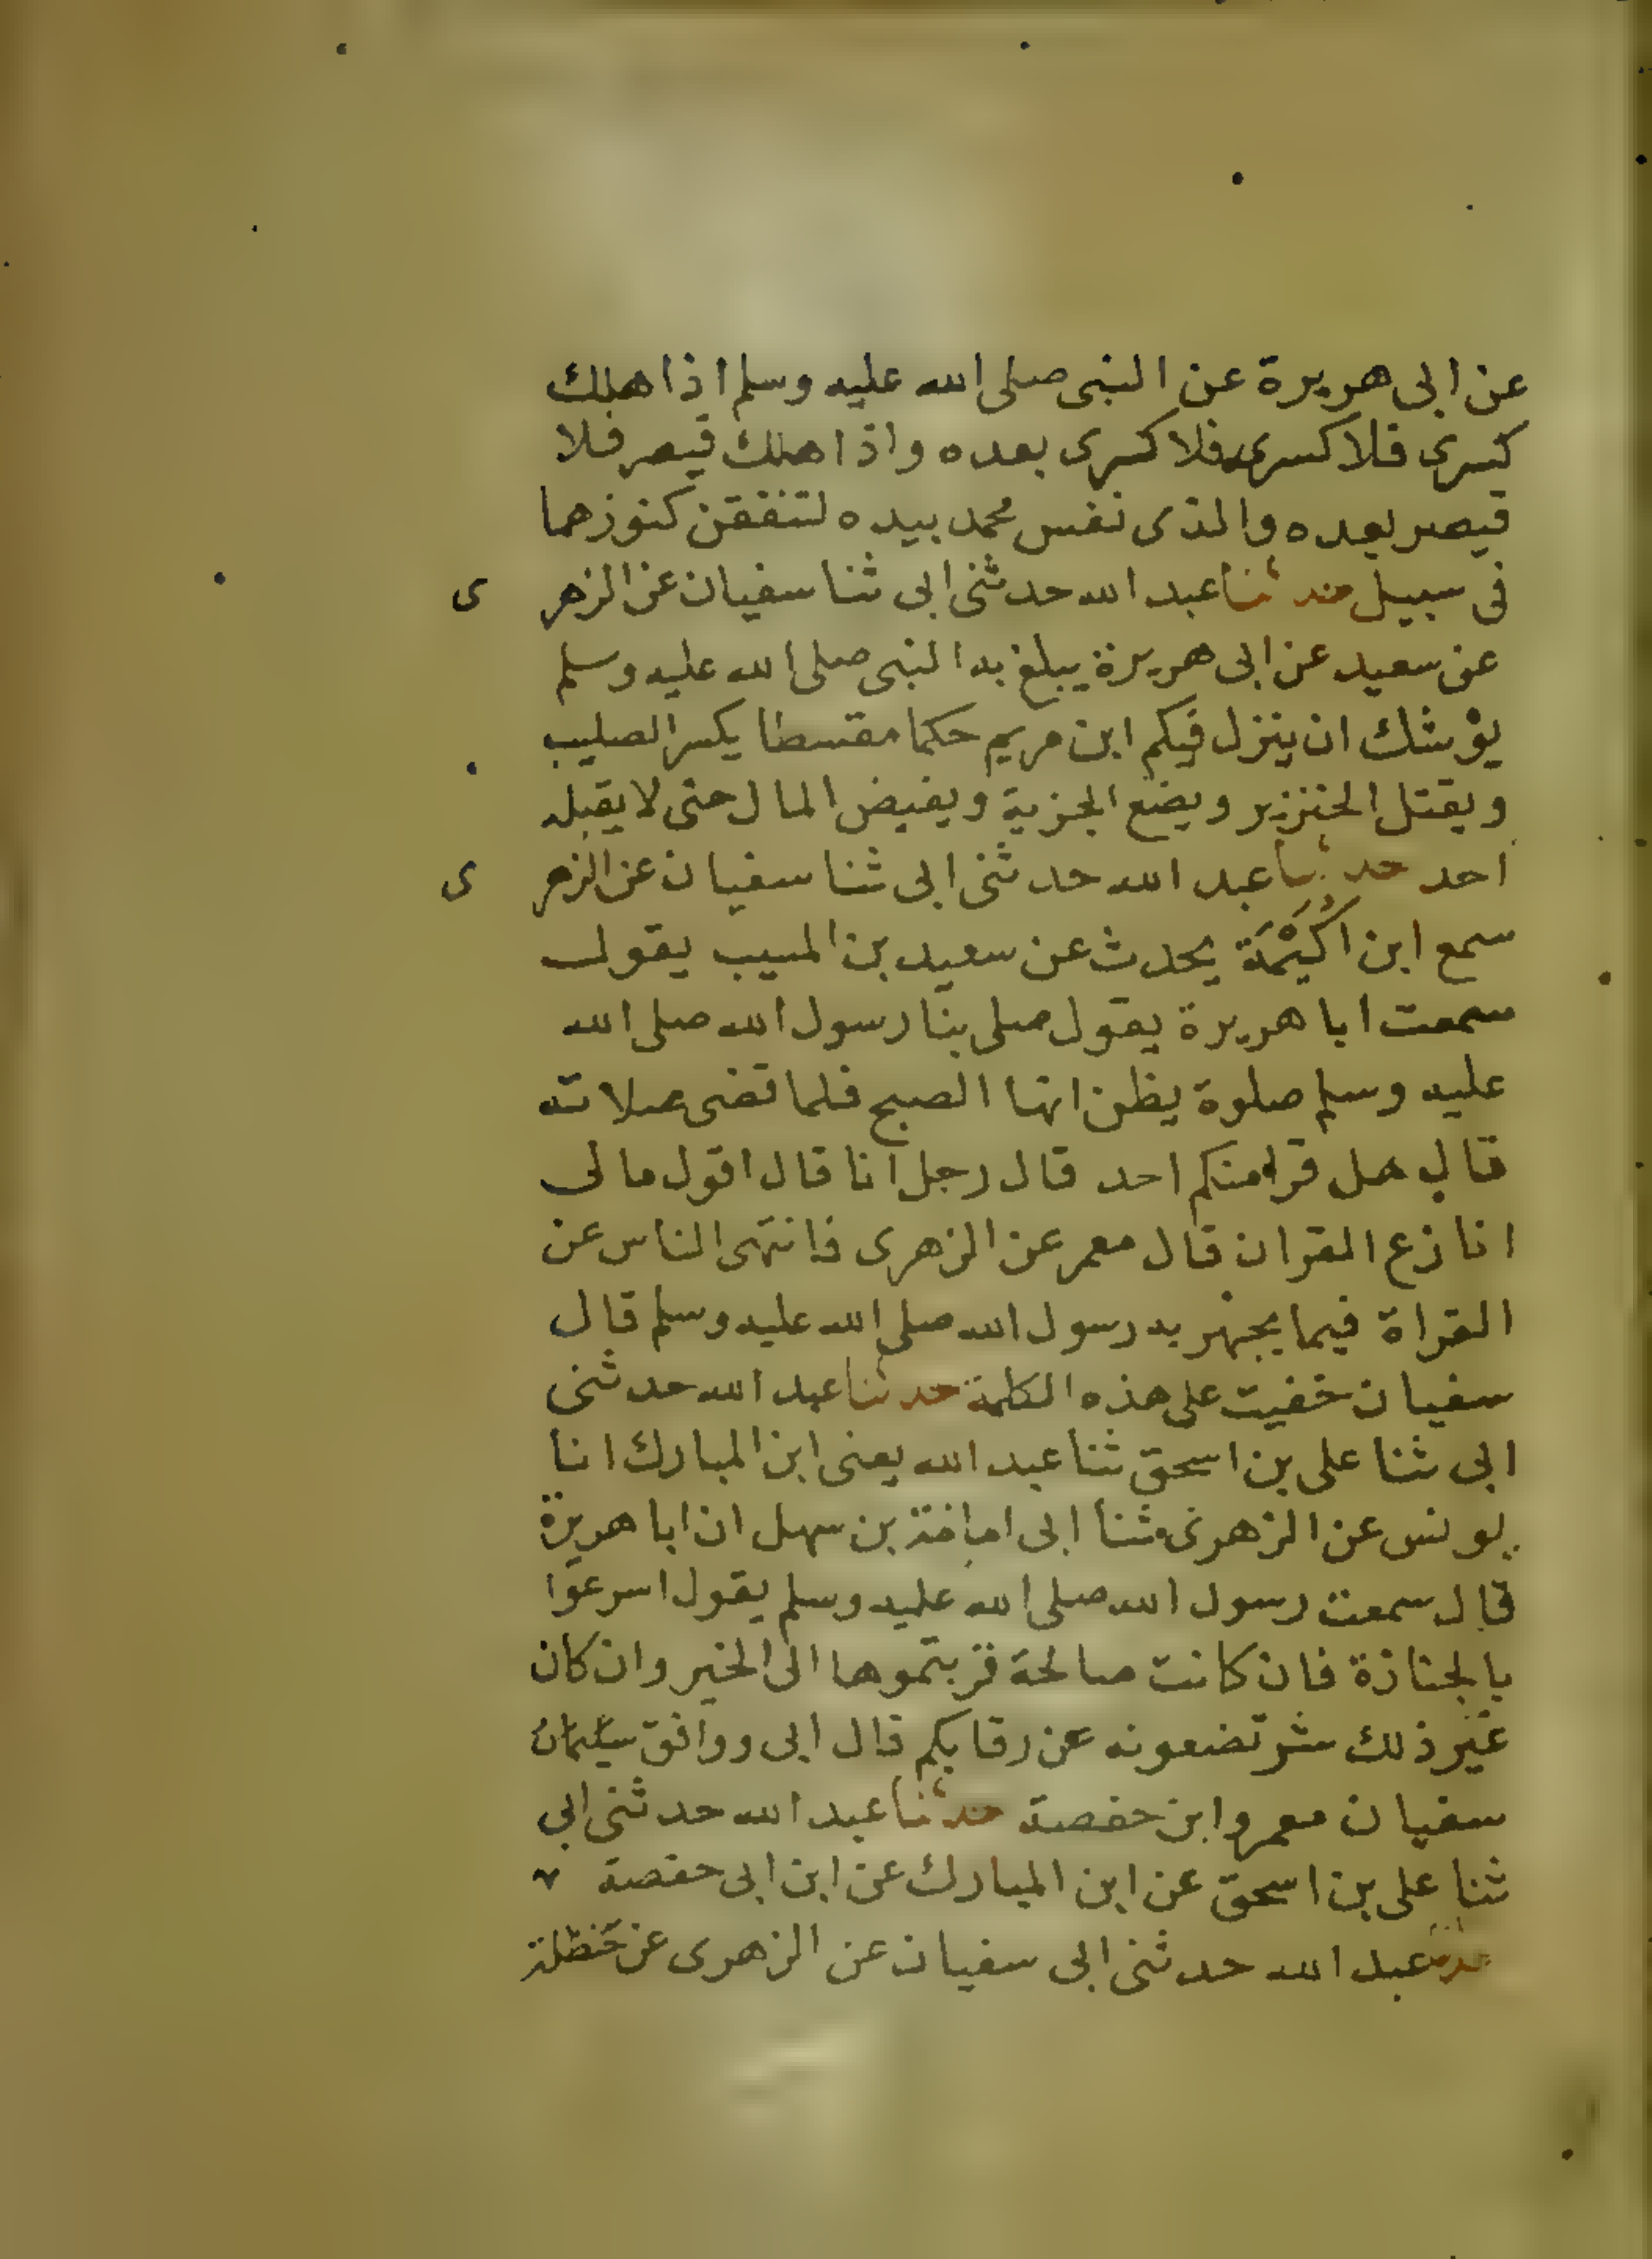 عن ابى هريرة عن النبى صلى الله عليه وسلم اذا هلك
كسرى فلا كسرى فلا كسرى بعده واذا هلك قيصر فلا
قيصر بعده والذى نفس محمد بيده لتنفقن كنوزهما
فى سبيل حدثنا عبد الله حدثنى ابى ثنا سفيان عن الزهرى
عن سعيد عن ابى هريرة يبلغ به النبى صلى الله عليه وسلم
يوشك ان ينزل فيكم ابن مريم حكما مقسطا يكسر الصليب
ويقتل الخنزير ويضع الجزية ويفيض المال حتى لا يقبله
احد حدثنا عبد الله حدثنى ابى ثنا سفيان عن الزهرى
سمع ابن اُكَيْمَة يحدث عن سعيد بن المسيب يقول
سمعت ابا هريرة يقول صلى بنا رسول الله صلى الله
عليه وسلم صلوة يظن انها الصبح فلما قضى صلاته
قال هل قرا منكم احد قال رجل انا قال اقول ما لى
انازع القران قال معمر عن الزهرى فانتهى الناس عن
القراة فيما يجهر به رسول الله صلى الله عليه وسلم قال
سفيان خفيت على هذه الكلمة حدثنا عبد الله حدثنى
ابى ثنا على بن اسحق ثنا عبد الله يعنى ابن المبارك انا
يونس عن الزهرى ثنا ابى امامة بن سهل ان ابا هريرة
قال سمعت رسول الله صلى الله عليه وسلم يقول اسرعوا
بالجنازة فان كانت صالحة قربتموها الى الخير وان كان
غير ذلك شر تضعونه عن رقابكم قال ابى ووافق سليمان
سفيان معمر وابن حفصة حدثنا عبد الله حدثنى ابى
ثنا على بن اسحق عن ابن المبارك عن ابن ابى حفصة
حدثنا عبد الله حدثنى ابى سفيان عن الزهرى عن حنظلة